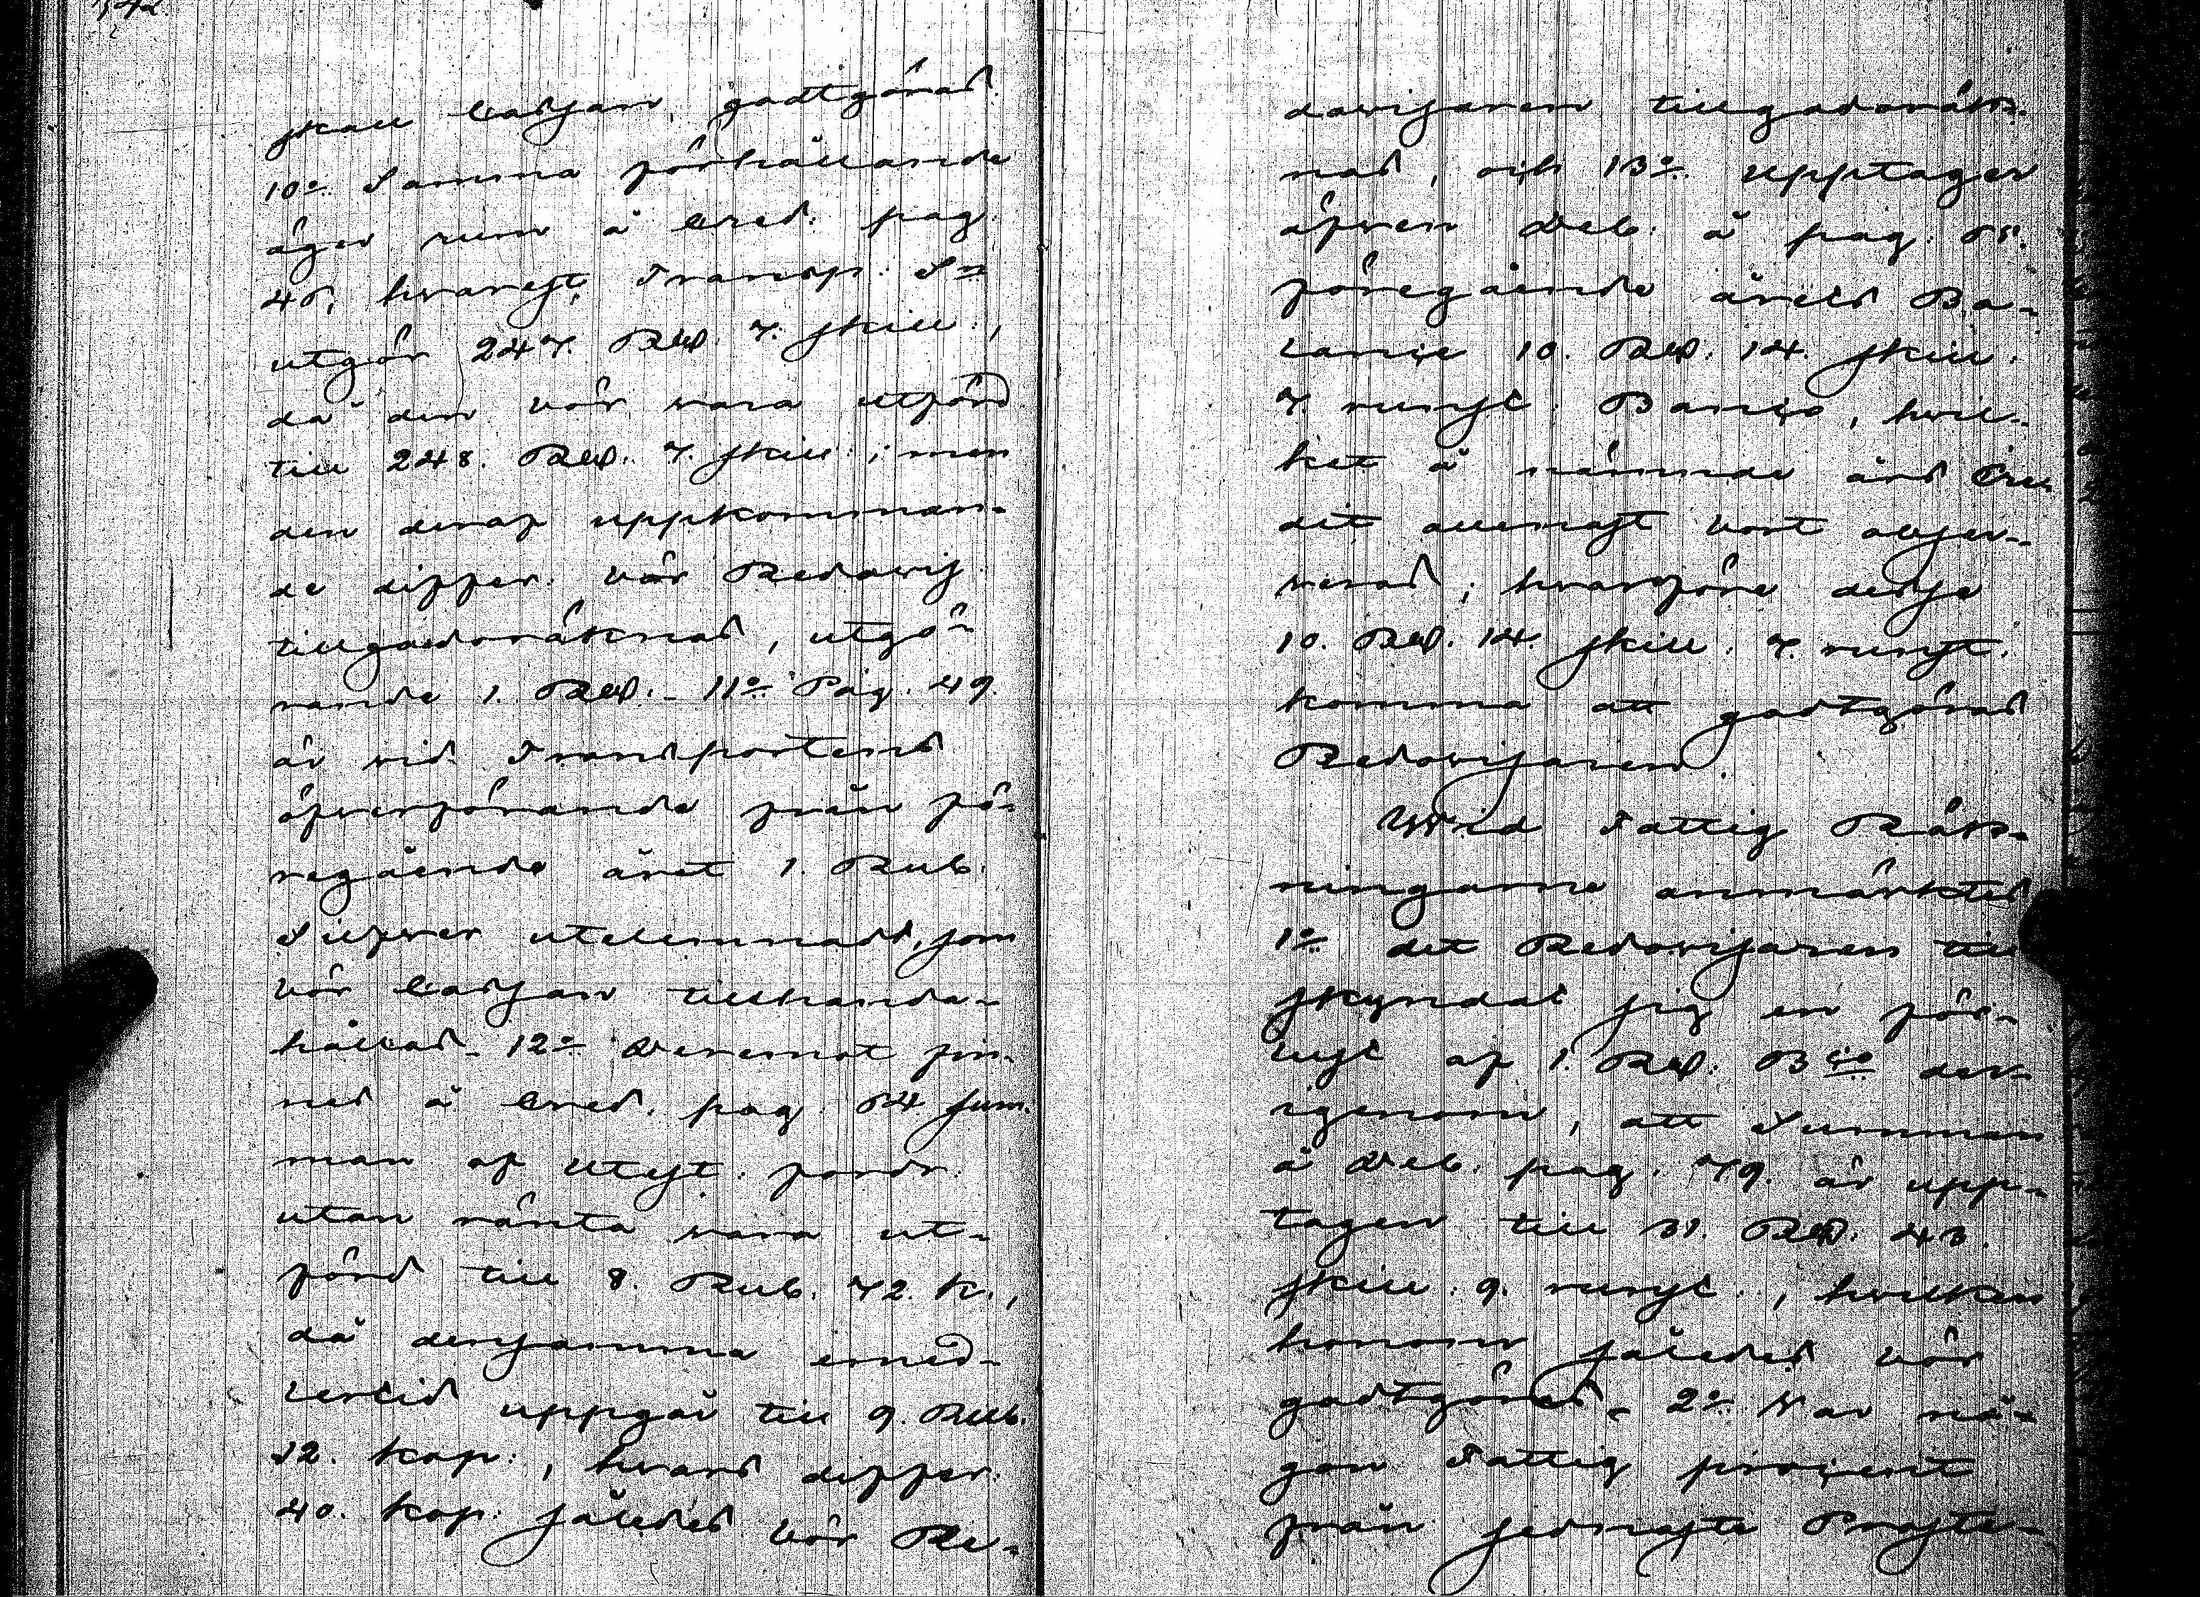 1842.
skall Cassan godtgöras.
10:o Samma förhållande
äger rum å Cred: pag:
45, hvarest Transp: S:n
utgör 247. RD. 7. skill:,
då den bör vara utförd
till 248. RD. 7. skill:; men
den deraf uppkomman-
de differ: bör Redovis:
tillgodoräknas, utgö-
rande 1. RD. - 11:o Pag. 49.
är vid Transportens
öfverförande från fö-
regående året 1. Rub.
Silfver utelemnadt, som
bör Cassan tillhanda-
hållas - 12:o Deremot fin-
nes å Cred. pag. 54 sum-
man af utest: fordr:
utan ränta vara ut-
förd till 8. Rub. 72. K.,
då densamma emed-
lertid uppgår till 9. Rub.
12. kop:, hvars differ:
40. kop: således bör Re-
dovisaren tillgodoräk-
nas, och 13:o upptager
äfven Deb: å pag:
föregående årets Ba-
lance 10. RD. 14. skill:
7. runst: Banco, hvil-
ket å nämnde års Cre-
dit allenast bort obser-
veras; hvarföre desse
10. RD. 14. skill: 7. runst:
komma att godtgöras
Redovisaren.
Wid Fattig Räk-
ningarne anmärktes
1:o det Redovisaren till
skyndat sig en för-
lust af 1. RD. B:co der-
igenom, att Summan
å Deb: pag. 79. är upp-
tagen till 31. RD. 43.
skill: 9. runst:, hvilken
honom således bör
godtgöras - 2:o War nå-
gon Fattig procent
från sednaste Proste-